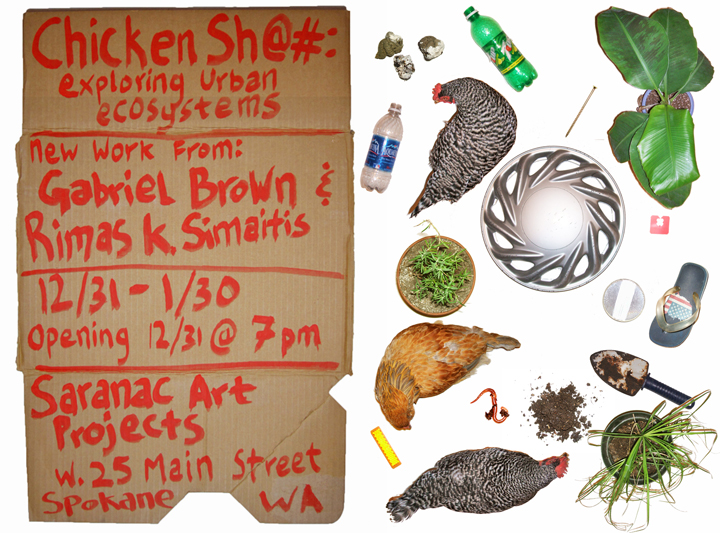 Chicken Sh@#:
exploring urban
ecosystems
New Work From:
Gabriel Brown &
Rimas K. Simaitis
12/31 - 1/30
Opening 12/31 @ 7pm
Saranac Art
Projects
W. 25 Main Street
Spokane WA